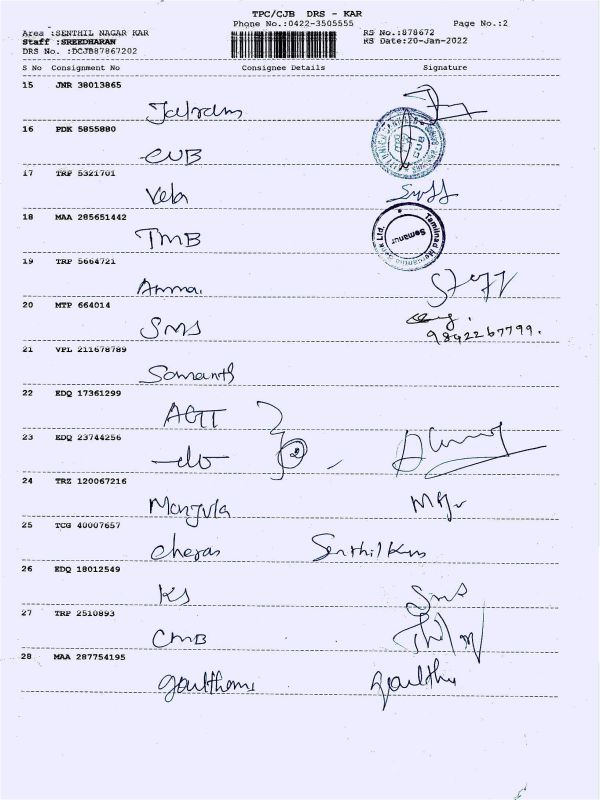 TPC/CJB DRS - KAR
Phone No.:0422-3505555
Page No.:2
Area :SENTHIL NAGAR KAR
RS No.:878672
Staff :SREEDHARAN
RS Date:20-Jan-2022
DRS No. :DCJB87867202
S No Consignment No Consignee Details Signature
15 JNR 38013865
Jalram
16 PDK 5855880
CUB
17 TRP 5321701
Vela
18 MAA 285651442
TMB
Tamilnad Mercantile Bank Ltd.
Semanur
19 TRP 5664721
Amma.
20 MTP 664014
SMS
9842267799.
21 VPL 211678789
Somanth
22 EDQ 17361299
AGTT
23 EDQ 23744256
-do- 2
24 TRZ 120067216
Manjula
25 TCG 40007657
Cheras Senthil Kum
26 EDQ 18012549
KS SMS
27 TRP 2510893
CMB
28 MAA 287754195
Gowthami